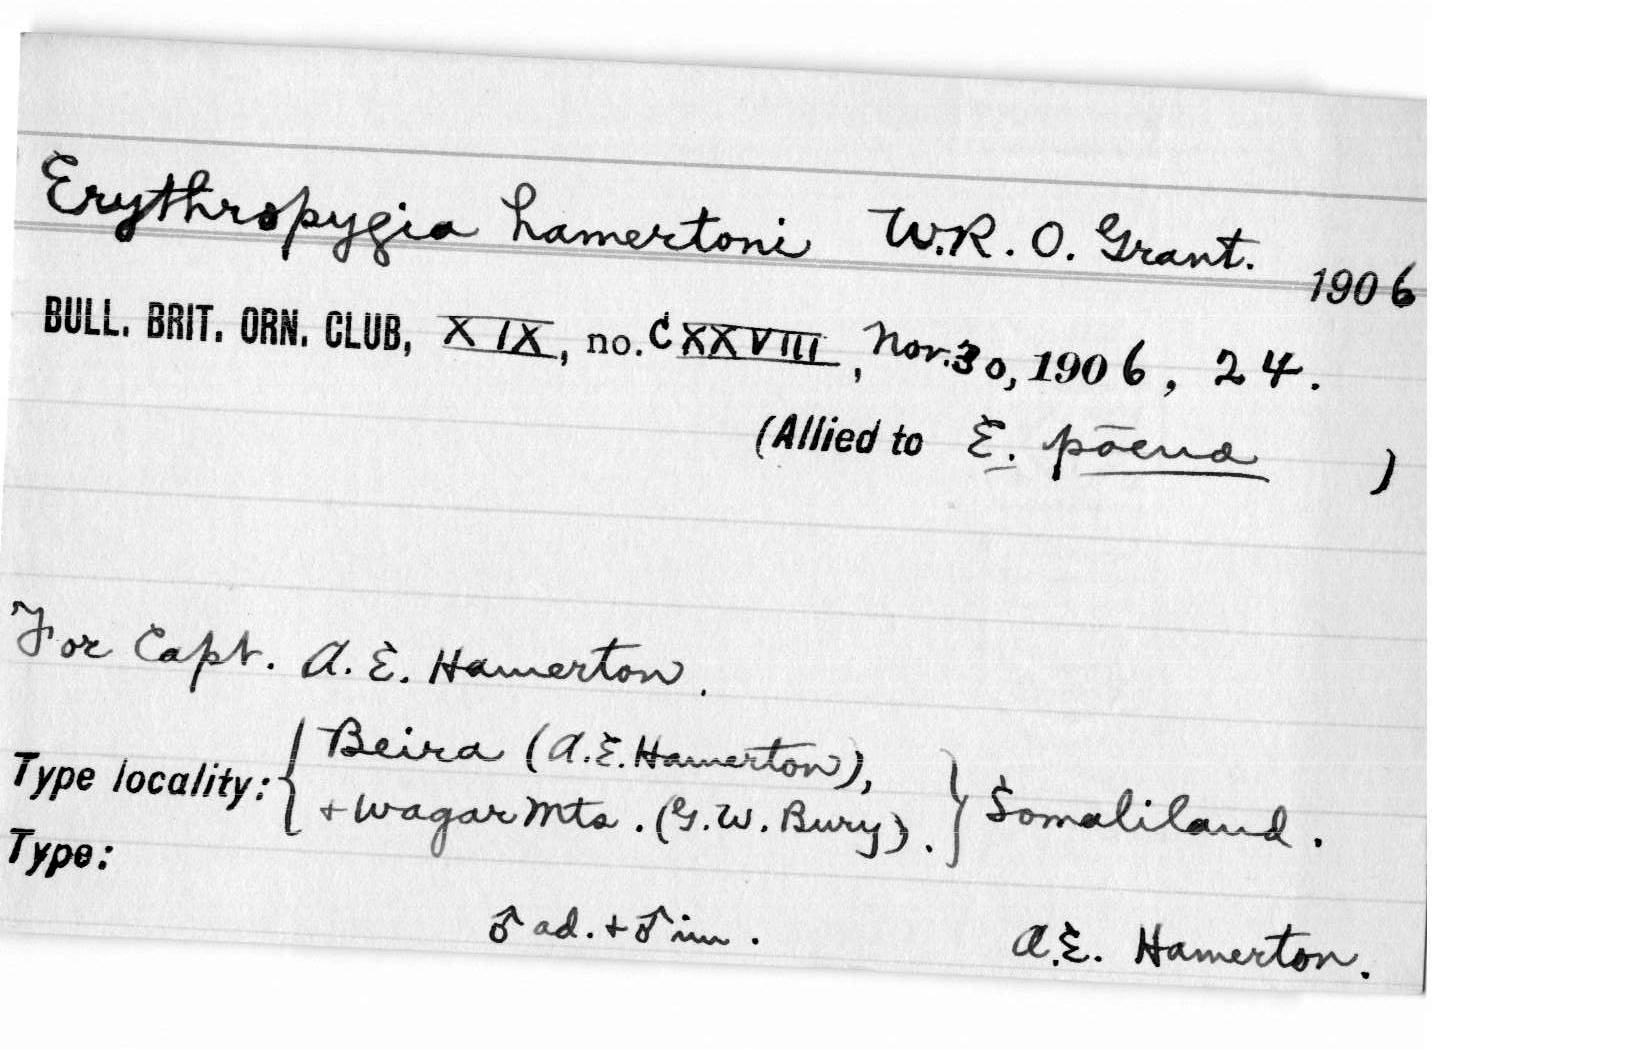 Erythropygia hamertoni W.R. O. Grant.
1906
BULL. BRIT. ORN. CLUB, XIX, no. CXXVIII, Nov. 30, 1906, 24.
(Allied to E. pōena )
For Capt. A. E. Hamerton.
Type locality: { Beira (A.E. Hamerton),
+ Wagar Mts. (G.W. Bury). } Somaliland.
Type:
♂ ad. + ♂ im. A.E. Hamerton.